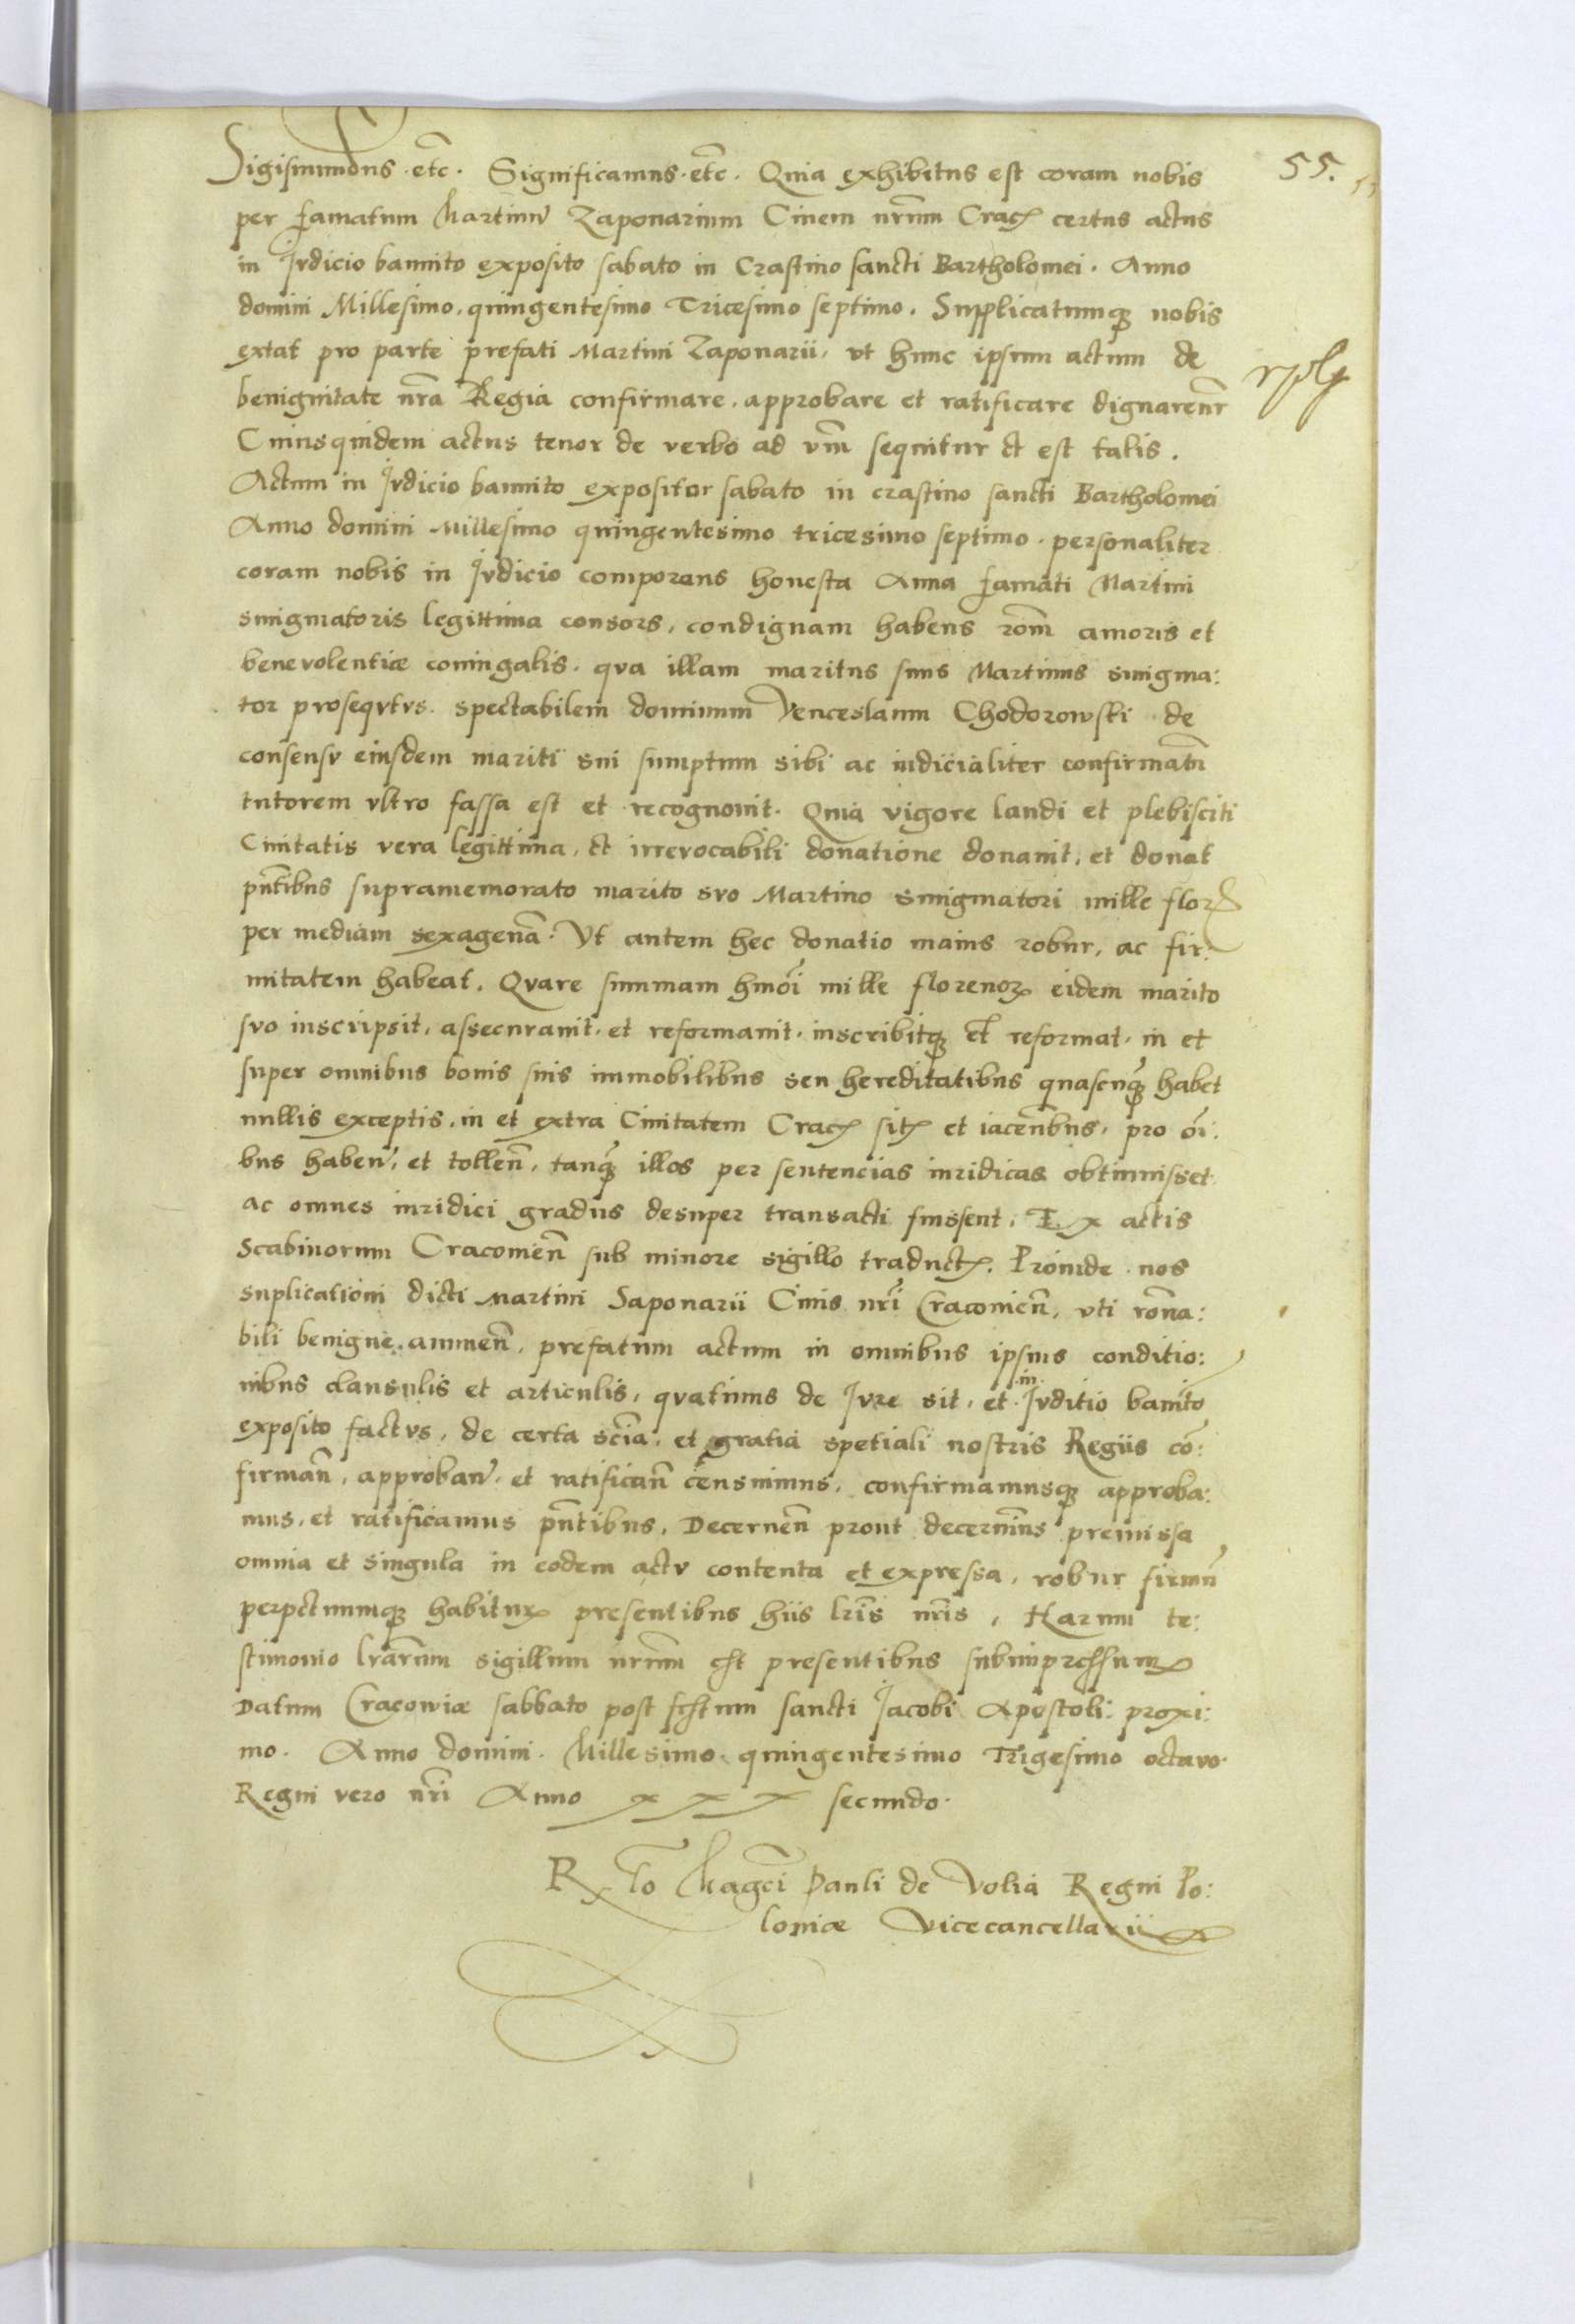 55.
Sigismundus etc. Significamus etc. Quia exhibitus est coram nobis
per famatum Martinum Zaponarium Civem nrum Crac certus actus
in Judicio bannito exposito sabato in Crastino sancti Bartholomei. Anno
domini Millesimo quingentesimo Tricesimo septimo. Supplicatumque nobis
extat pro parte prefati Martini Zaponarii, ut hunc ipsum actum de
benignitate nra Regia confirmare, approbare et ratificare dignaremur
Cuiusquidem actus tenor de verbo ad vm sequitur et est talis.
Actum in Judicio bannito expositor sabato in crastino sancti Bartholomei
Anno domini Millesimo quingentesimo tricesimo septimo. personaliter
coram nobis in Judicio comporens honesta Anna famati Martini
smigmatoris legittima consors, condignam habens rom amoris et
benevolentiæ coniugalis. qua illam maritus suus Martinus smigma:
tor prosequtus. spectabilem dominum Venceslaum Chodorowski de
consensu eiusdem mariti sui sumptum sibi ac iudicialiter confirmatu
tutorem ultro fassa est et recognovit. Quia vigore laudi et plebisciti
Civitatis vera legittima, et irrevocabili donatione donavit, et donat
pntibus supramemorato marito suo Martino smigmatori mille flor
per mediam sexagena. Ut autem hec donatio maius robur, ac fir:
mitatem habeat. Quare summam hmoi mille florenor eidem marito
suo inscripsit, assecuravit et reformavit. inscribitque et reformat. in et
super omnibus bonis suis immobilibus seu hereditatibus quascunque habet
nullis exceptis, in et extra Civitatem Crac sit et iacentibus, pro oi:
bus haben, et tollen, tanque illos per sentencias iuridicas obtinuisset
ac omnes iuridici gradus desuper transacti fuissent. Ex actis
Scabinorum Cracovien sub minore sigillo traduct. Proinde nos
suplicationi dicti Martini Saponarii Civis nri Cracovien, uti rona:
bili benigne annuen, prefatum actum in omnibus ipsius conditio:
nibus clausulis et articulis, quatinus de Jure sit, et in Juditio banito
exposito factus, de certa scia, et gratia spetiali nostris Regiis co:
firman, approban. et ratifican censuimus, confirmamusque approba:
mus, et ratificamus pntibus, Decernen prout decernimus premissa
omnia et singula in eodem actu contenta et expressa, robur firmu
perpetuumque habitur presentibus hiis lris nris, Harum te:
stimonio lrarum sigillum nrum est presentibus subimpressum
Datum Cracoviæ sabbato post festum sancti Jacobi Apostoli proxi:
mo. Anno domini. Millesimo quingentesimo Trigesimo octavo.
Regni vero nri Anno xxx secundo.
R lo Magci Pauli de Volia Regni Po:
loniæ Vicecancellarii